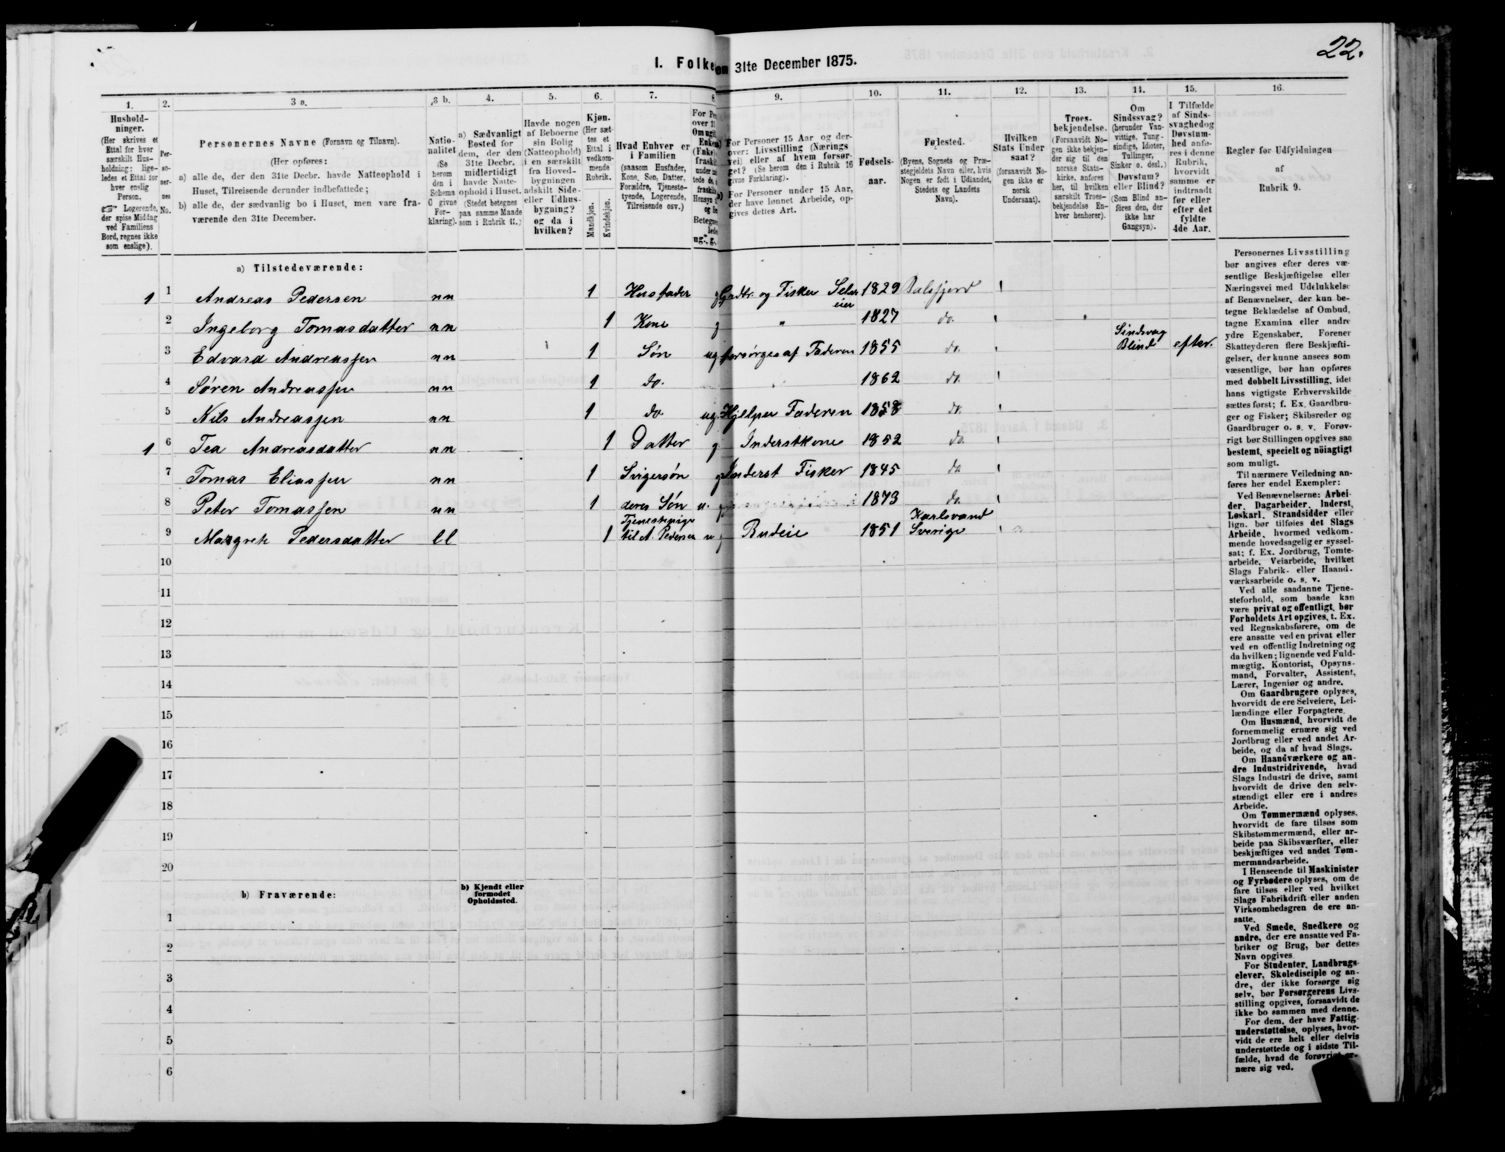 22.
I. Folke
om 31te December 1875.
1.
Hushold-
ninger.
(Her skrives et
Ettal for hver
særskilt Hus-
holdning; lige-
ledes et Ettal for
hver enslig
Person.
☞ Logerende,
der spise Middag
ved Familiens
Bord, regnes ikke
som enslige).
2.
Per-
so-
ner-
nes
No.
3 a.
Personernes Navne (Fornavn og Tilnavn).
(Her opføres:
a) alle de, der den 31te Decbr. havde Natteophold i
Huset, Tilreisende derunder indbefattede;
b) alle de, der sædvanlig bo i Huset, men vare fra-
værende den 31te December.
3 b.
Natio-
nalitet
(Se
herom
den i
Schema
G givne
For-
klaring).
4.
a) Sædvanligt
Bosted for
dem, der den
31te Decbr.
midlertidigt
havde Natte-
ophold i Huset.
(Stedet betegnes
paa samme Maade
som i Rubrik 11.)
5.
Havde nogen
af Beboerne
sin Bolig
(Natteophold)
i en særskilt
fra Hoved-
bygningen
adskilt Side-
eller Udhus-
bygning?
og da i
hvilken?
6.
Kjøn.
(Her sæt-
tes et
Ettal i
vedkom-
mende
Rubrik.
Mandkjøn.
Kvindekjøn.
7.
Hvad Enhver er
i Familien
(saasom Husfader,
Kone, Søn, Datter,
Forældre, Tjeneste-
tyende, Logerende,
Tilreisende osv.)
8.
9.
For Personer 15 Aar og der-
over: Livsstilling (Nærings-
vei) eller af hvem forsør-
get? (Se herom den i Rubrik 16
givne Forklaring).
For Personer under 15 Aar,
der have lønnet Arbeide, op-
gives dettes Art.
10.
Fødsels-
aar.
11.
Fødested.
(Byens, Sognets og Præ-
stegjeldets Navn eller, hvis
Nogen er født i Udlandet,
Stedets og Landets
Navn).
12.
Hvilken
Stats Under
saat?
(forsaavidt No-
gen ikke er
norsk
Undersaat).
13.
Troes-
bekjendelse.
(Forsaavidt No-
gen ikke bekjen-
der sig til den
norske Stats-
kirke, anføres
her, til hvilken
særskilt Troes-
bekjendelse En-
hver henhører).
14.
Om
Sindssvag?
(herunder Van-
vittige, Tung-
sindige, Idioter,
Tullinger,
Sinker o. desl.)
Døvstum?
eller Blind?
(Som Blind an-
føres den, der
ikke har
Gangsyn).
15.
I Tilfælde
af Sinds-
svaghed og
Døvstum-
hed anfø-
res i denne
Rubrik,
hvorvidt
samme er
indtraadt
før eller
efter det
fyldte
4de Aar.
16.
Regler før Udfyldningen
af
Rubrik 9.
a) Tilstedeværende:
1 1 Andreas Pedersen nn 1 Husfader g Grdbr. og Fisker Selv eier 1829 Balsfjord
2 Ingeborg Tomasdatter nn 1 Kone g " 1827 do.
3 Edvard Andreassen nn 1 Søn ug forsørges af Faderen 1855 do. Sindsvag Blind efter.
4 Søren Andreassen nn 1 do. 1862 do.
5 Nils Andreassen nn 1 do ug. Hjelper Faderen 1858 do.
1 6 Tea Andreasdatter nn 1 Datter g Inderstkone 1852 do
7 Tomas Eliassen nn 1 Svigersøn g Inderst Fisker 1845 do
8 Peter Tomassen nn 1 deres Søn u. 1873 do.
9 Margrete Pedersdatter ll 1 Tjenestepige til A. Pedersen u g Budeie 1851 Karlsvand Sverige
10
11
12
13
14
15
16
17
18
19
20
b) Fraværende:
b) Kjendt eller
formodet
Opholdssted.
1
2
3
4
5
6
Personernes Livsstilling
bør angives efter deres væ-
sentlige Beskjæftigelse eller
Næringsvei med Udelukkelse
af Benævnelser, der kun be-
tegne Beklædelse af Ombud,
tagne Examina eller andre
ydre Egenskaber. Forener
Skatteyderen flere Beskjæfti-
gelser, der kunne ansees som
væsentlige, bør han opføres
med dobbelt Livsstilling, idet
hans vigtigste Erhvervskilde
sættes først; f. Ex. Gaardbru-
ger og Fisker; Skibsreder og
Gaardbruger o. s. v. Forøv-
rigt bør Stillingen opgives saa
bestemt, specielt og nøiagtigt
som muligt.
Til nærmere Veiledning an-
føres her endel Exempler:
Ved Benævnelserne: Arbei-
der, Dagarbeider, Inderst,
Løskarl, Strandsidder eller
lign. bør tilføies det Slags
Arbeide, hvormed vedkom-
mende hovedsagelig er syssel-
sat; f. Ex. Jordbrug, Tomte-
arbeide, Veiarbeide, hvilket
Slags Fabrik- eller Haand-
værksarbeide o. s. v.
Ved alle saadanne Tjene-
steforhold, som baade kan
være privat og offentligt, bør
Forholdets Art opgives, t. Ex.
ved Regnskabsførere, om de
ere ansatte ved en privat eller
ved en offentlig Indretning og
da hvilken; lignende ved Fuld-
mægtig, Kontorist, Opsyns-
mand, Forvalter, Assistent,
Lærer, Ingeniør og andre.
Om Gaardbrugere oplyses,
hvorvidt de ere Selveiere, Lei-
lændinge eller Forpagtere.
Om Husmænd, hvorvidt de
fornemmelig ernære sig ved
Jordbrug eller ved andet Ar-
beide, og da af hvad Slags.
Om Haandværkere og an-
dre Industridrivende, hvad
Slags Industri de drive, samt
hvorvidt de drive den selv-
stændigt eller ere i andres
Arbeide.
Om Tømmermænd oplyses,
hvorvidt de fare tilsøs som
Skibstømmermænd, eller ar-
beide paa Skibsværfter, eller
beskjæftiges ved andet Tøm-
mermandsarbeide.
I Henseende til Maskinister
og Fyrbødere oplyses, om de
fare tilsøs eller ved hvilket
Slags Fabrikdrift eller anden
Virksomhedsgren de ere an-
satte.
Ved Smede, Snedkere og
andre, der ere ansatte ved Fa-
briker og Brug, bør dettes
Navn opgives
For Studenter, Landbrugs-
elever, Skoledisciple og an-
dre, der ikke forsørge sig
selv, bør Forsørgerens Livs-
stilling opgives, forsaavidt de
ikke bo sammen med denne.
For dem, der have Fattig-
understøttelse, oplyses, hvor-
vidt de ere helt eller delvis
understøttede og i sidste Til-
fælde, hvad de forøvrigt er-
nære sig ved.